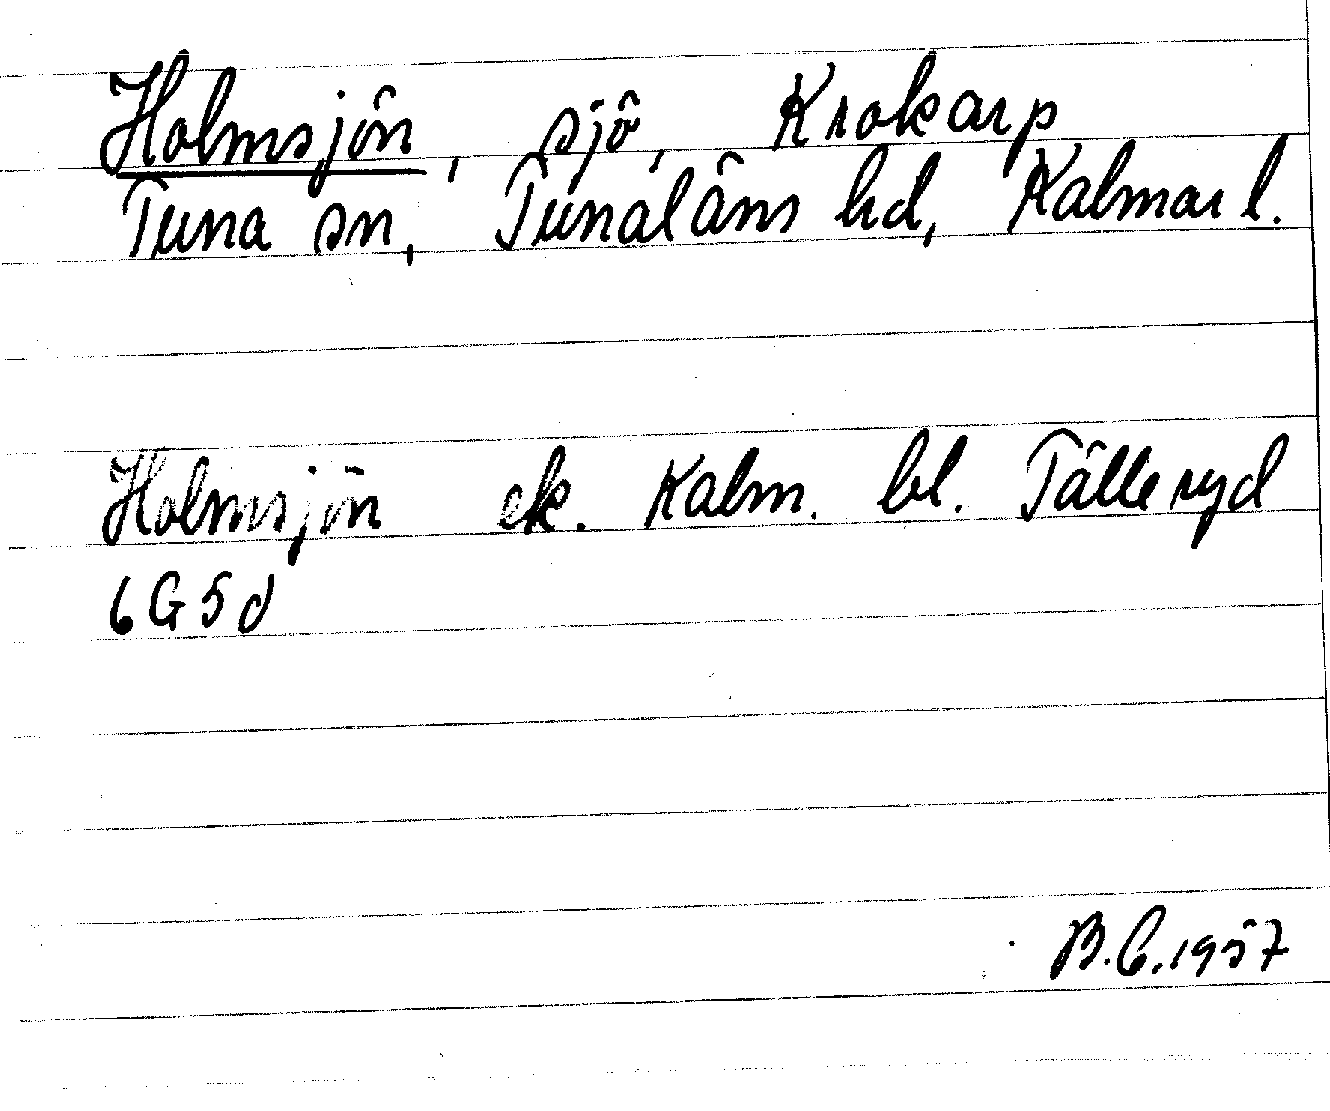 Holmsjön, sjö, Krokarp
Tuna sn, Tunaläns hd, Kalmar l.
Holmsjön ek. Kalm. bl. Tälleryd
6G5d
B.C. 1957